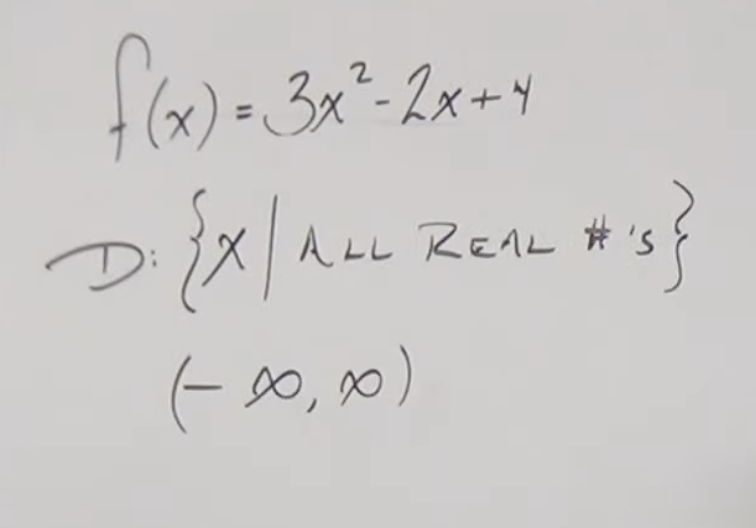 f(x) = 3x² - 2x + 4
D: {X | ALL REAL #'s}
(-∞, ∞)